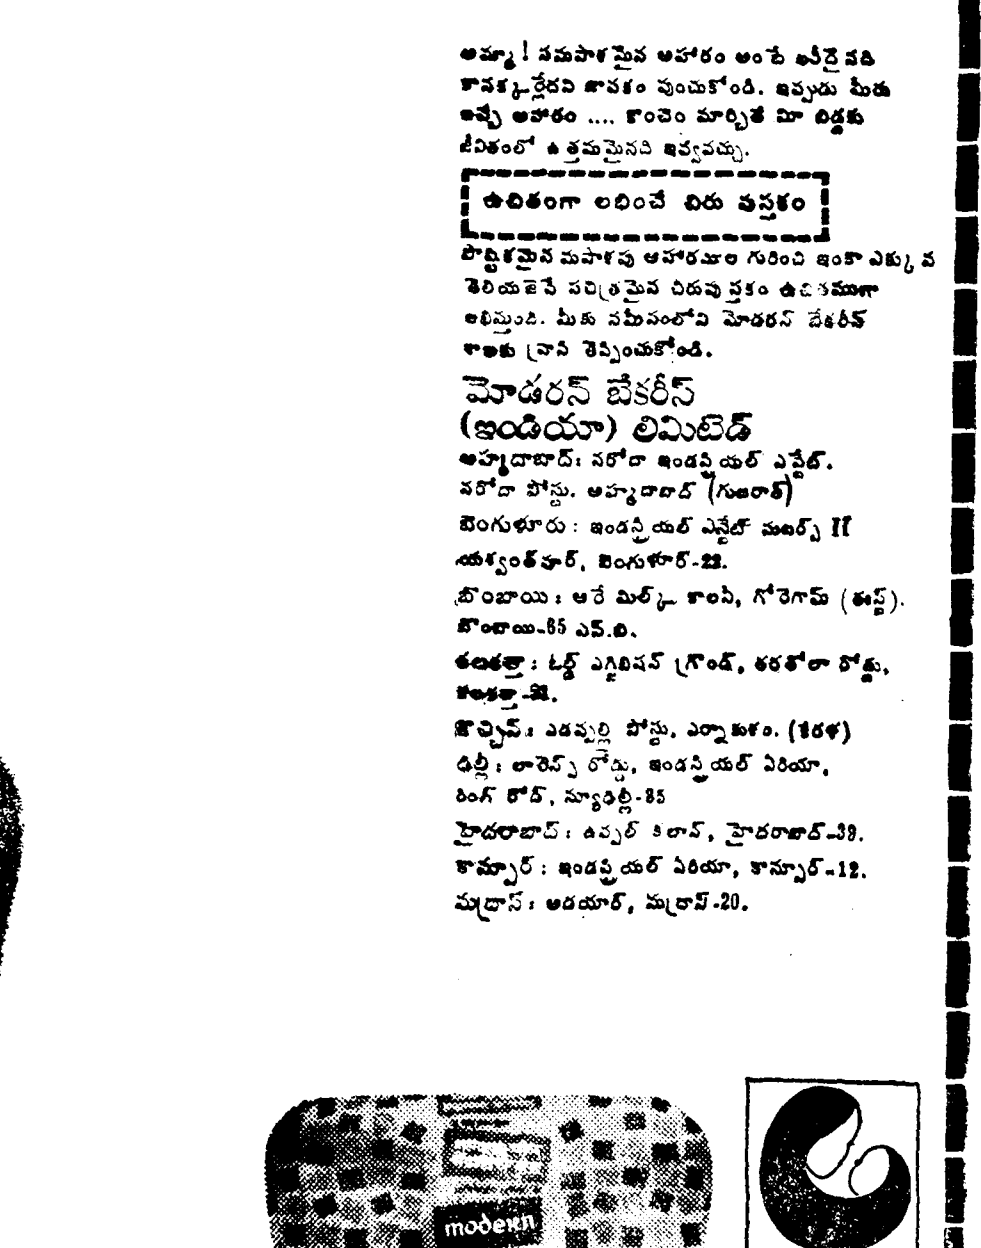 అమ్మా! సమపాళమైన ఆహారం అంటే ఖరీదైనది
కానక్కర్లేదని జ్ఞాపకం వుంచుకోండి. ఇప్పుడు మీరు
ఇచ్చే ఆహారం .... కొంచెం మార్చితే మీ బిడ్డకు
జీవితంలో ఉత్తమమైనది ఇవ్వవచ్చు.
ఉచితంగా లభించే చిరు పుస్తకం
పౌష్టికమైన సమపాళపు ఆహారముల గురించి ఇంకా ఎక్కువ
తెలియజెసే సచిత్రమైన చిరుపుస్తకం ఉచితముగా
లభిస్తుంది. మీకు సమీపంలోని మోడరన్ బేకరీస్
శాఖకు వ్రాసి తెప్పించుకోండి.
మోడరన్ బేకరీస్
(ఇండియా) లిమిటెడ్
అహ్మదాబాద్: నరోదా ఇండస్ట్రియల్ ఎస్టేట్.
నరోదా పోస్టు. అహ్మదాబాద్ (గుజరాత్)
బెంగుళూరు: ఇండస్ట్రియల్ ఎస్టేట్ సబర్బ్ II
యశ్వంత్‌పూర్, బెంగుళూర్-22.
బొంబాయి: ఆరే మిల్క్ కాలనీ, గోరెగామ్ (ఈస్ట్).
బొంబాయి-65 ఎన్.బి.
కలకత్తా: ఓల్డ్ ఎగ్జిబిషన్ గ్రౌండ్, తరతోలా రోడ్డు,
కలకత్తా
కొచ్చిన్: ఎడప్పల్లి పోస్టు, ఎర్నాకుళం. (కేరళ)
ఢిల్లీ: లారెన్స్ రోడ్డు, ఇండస్ట్రియల్ ఏరియా,
రింగ్ రోడ్, న్యూఢిల్లీ-35
హైదరాబాద్: ఉప్పల్ కలాన్, హైదరాబాద్-39.
కాన్పూర్: ఇండస్ట్రియల్ ఏరియా, కాన్పూర్-12.
మద్రాస్: అడయార్, మద్రాస్-20.
modern